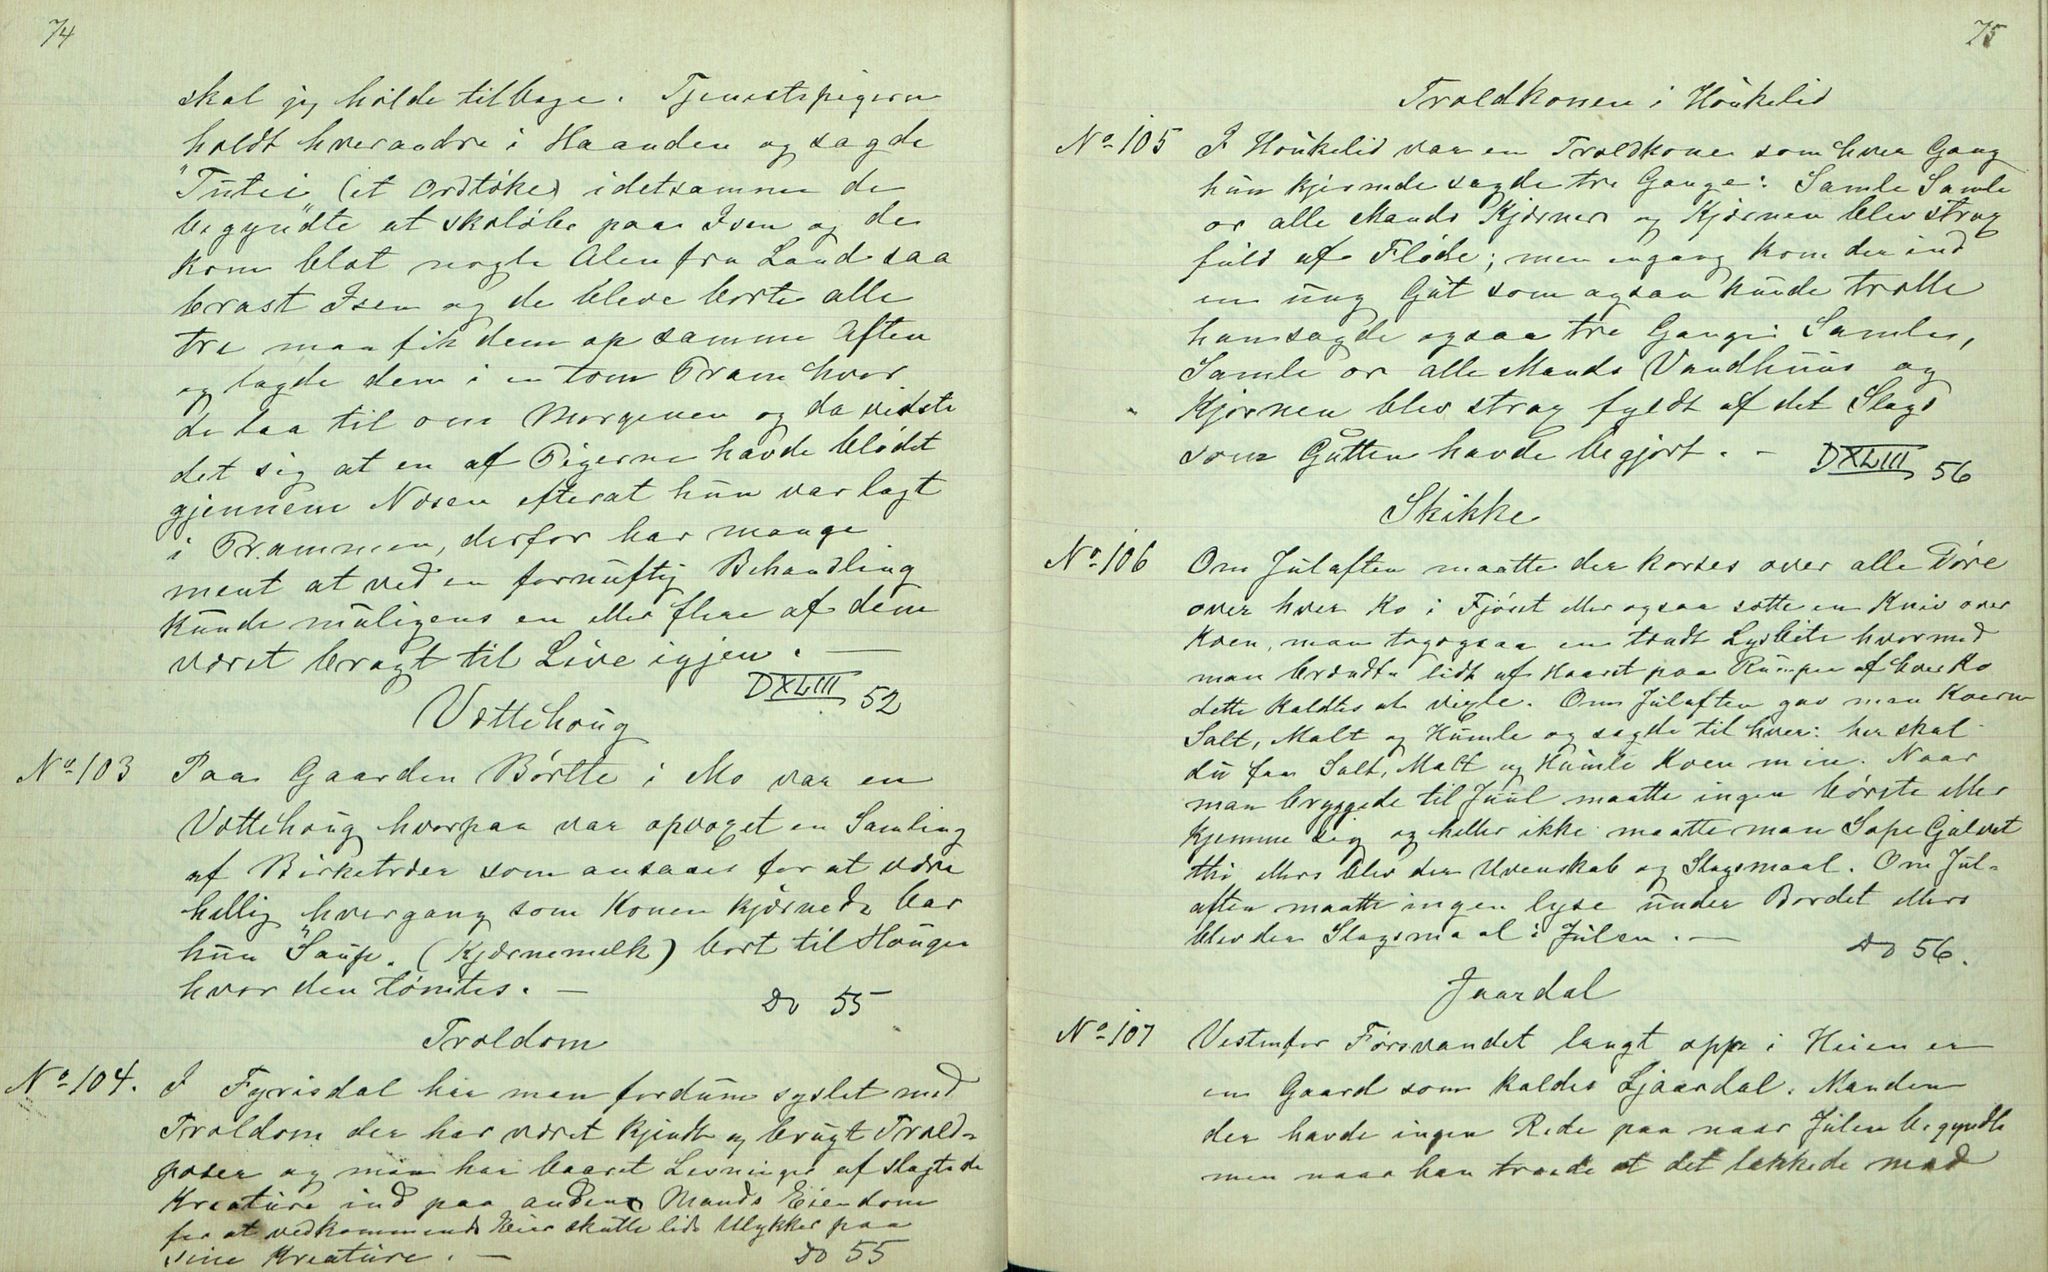 74
skal jeg holde tilbage. Tjenestepigerne
holdt hverandre i Haanden og sagde
"Tutei" (et Ordtøke) idetsamme de
begyndte at skoløbe paa Isen og de
kom blot nogle Alen fra Land saa
brast Isen og de bleve borte alle
tre man fik dem op samme Aften
og lagde dem i en tom Pram hvor
de laa til om Morgenen og da vidste
det sig at en af Pigerne havde blødet
gjennem Nøsen efterat hun var lagt
i Prammen, derfor har mange
ment at ved en fornuftig Behandling
kunde muligens en eller flere af dem
været bragt til Live igjen. —
DXLIII 52
Vættehoug
No 103 Paa Gaarden Børtte i Mo var en
Vættehoug hvorpaa var opvoxet en Samling
af Birketræer som ansaaes for at være
hellig hvergang som Konen kjærnede bar
hun "Saup" (Kjærnemelk) bort til Hougen
hvor den tømtes. —
Do 55
Troldom
No 104. I Fyrisdal har man fordum syslet med
Troldom der har været kjendt og brugt Trold-
poser og man har baaret Levninger af slagtede
Kreature ind paa anden Mands Eiendom
for at vedkommende Eier skulle lide Ulykker paa
sine Kreature. —
Do 55
75
Troldkonen i Houkelid
No 105 I Houkelid var en Troldkone som hver Gang
hun kjernede sagde tre Gange: Samle Samle
or alle Mands Kjærner og Kjærnen blev strax
fuld af Fløde; men engang kom der ind
en ung Gut som ogsaa kunde trolle
han sagde ogsaa tre Gange: Samle,
Samle or alle Mands Vandhuus og
Kjærnen blev strax fyldt af det Slags
som Gutten havde begjørt. -
DXLIII 56
Skikke
No 106 Om Julaften maatte der korses over alle Døre
over hver Ko i Fjøset eller ogsaa sætte en Kniv over
Koen, man tog ogsaa en tændt Lysbete hvormed
man brændte lidt af Haaret paa Rumpen af hver Ko
dette kaldtes at vigle. Om Julaften gav man Koerne
Salt, Malt og Humle og sagde til hver: her skal
du faa Salt, Malt og Humle Koen min. Naar
man bryggede til Juul maatte ingen børste eller
kjemme sig og heller ikke maatte man Sope Gulvet
thi ellers blev der Uvenskab og Slagsmaal. Om Jul-
aften maatte ingen lyse under Bordet ellers
blev der Slagsmaal i Julen. —
Do 56.
Jaardal
No 107 VestenforFørsvandet langt oppe i Heien er
en Gaard som kaldes Ljaardal. Manden
der havde ingen Rede paa naar Julen begyndte
men naar han troede at det lakkede mod